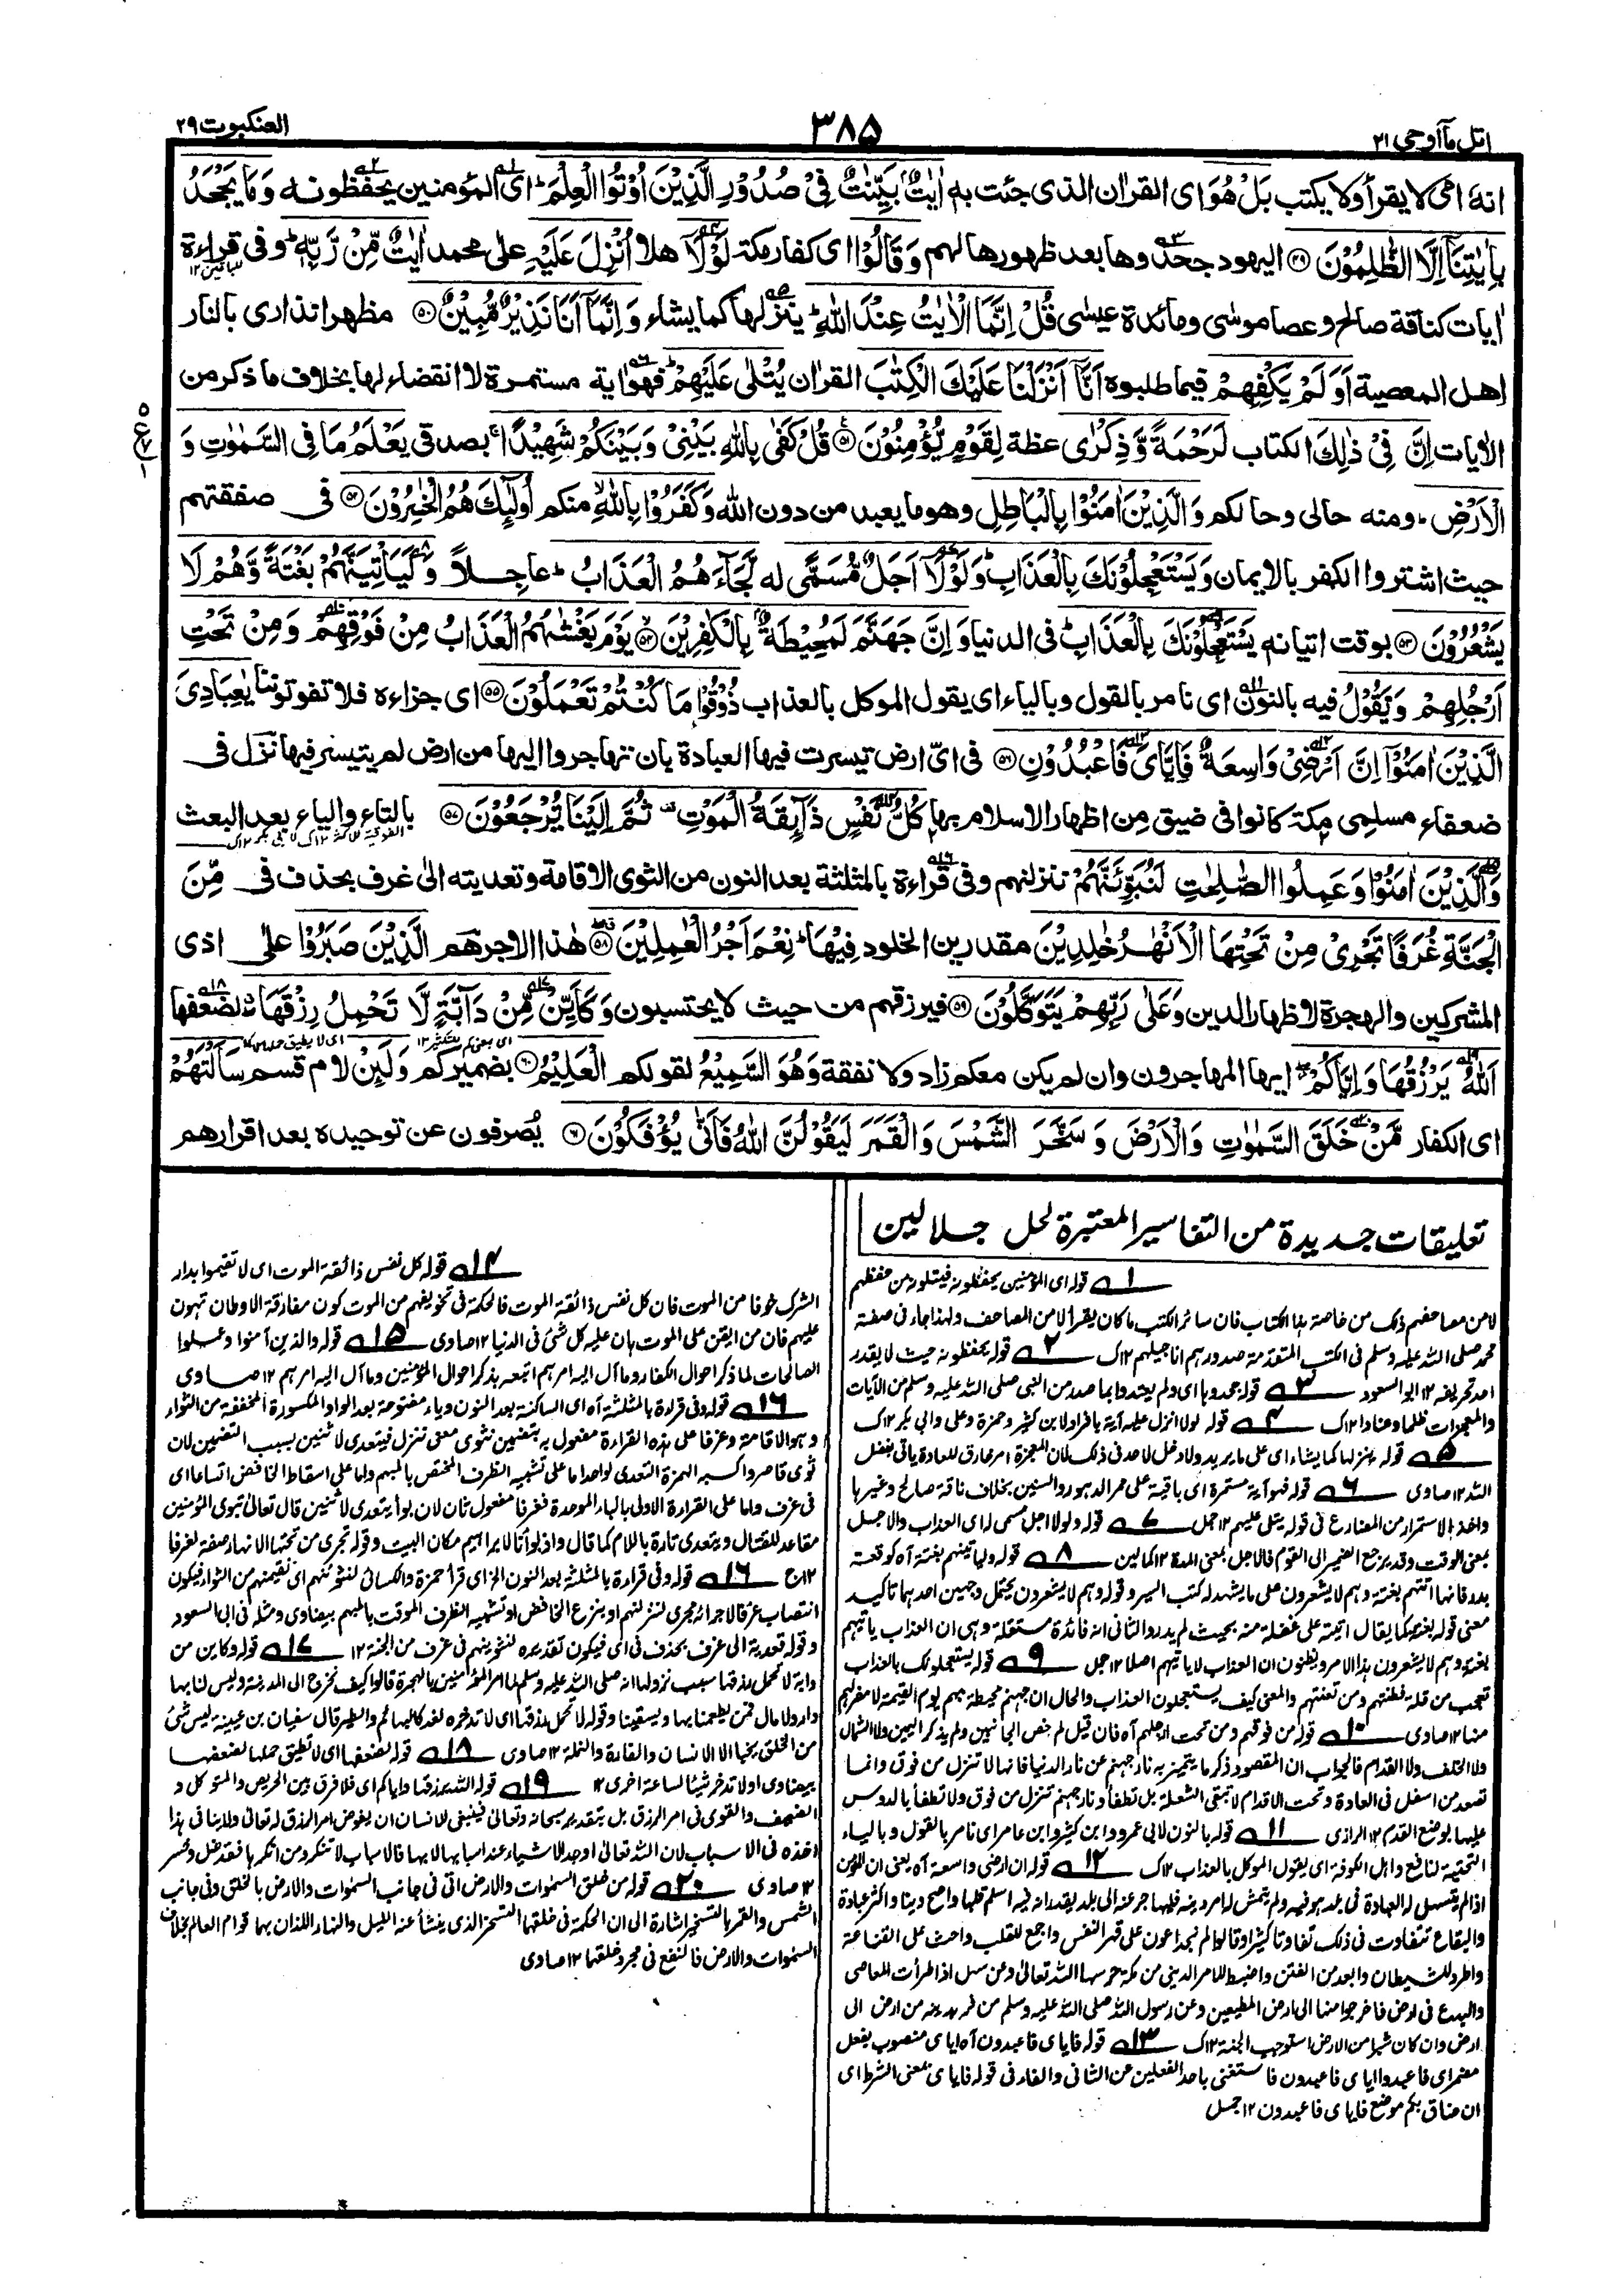 اتل مآ اوحى ٢١
٣٨٥
العنكبوت ٢٩
انه امى لا يقرأ ولا يكتب بَلْ هُوَ اى القرآن الذى جئت به اٰيٰتٌۢ بَيِّنٰتٌ فِيْ صُدُوْرِ الَّذِيْنَ اُوْتُوا الْعِلْمَ ؕ اى المؤمنين يحفظونه وَمَا يَجْحَدُ
بِاٰيٰتِنَاۤ اِلَّا الظّٰلِمُوْنَ ۝٤٩ اليهود جحدوها بعد ظهورها لهم وَقَالُوْا اى كفار مكة لَوْلَاۤ هلا اُنْزِلَ عَلَيْهِ على محمد اٰيٰتٌ مِّنْ رَّبِّهٖ ؕ وفى قراءة
اٰيات كناقة صالح وعصا موسٰى ومائدة عيسٰى قُلْ اِنَّمَا الْاٰيٰتُ عِنْدَ اللّٰهِ ؕ ينزلها كما يشاء وَاِنَّمَاۤ اَنَا نَذِيْرٌ مُّبِيْنٌ ۝٥٠ مظهر انذارى بالنار
اهل المعصية اَوَلَمْ يَكْفِهِمْ فيما طلبوه اَنَّاۤ اَنْزَلْنَا عَلَيْكَ الْكِتٰبَ القرآن يُتْلٰى عَلَيْهِمْ ؕ فهو اٰية مستمرة لا انقضاء لها بخلاف ما ذكر من
الاٰيات اِنَّ فِيْ ذٰلِكَ الكتاب لَرَحْمَةً وَّذِكْرٰى عظة لِقَوْمٍ يُّؤْمِنُوْنَ ۝٥١ قُلْ كَفٰى بِاللّٰهِ بَيْنِيْ وَبَيْنَكُمْ شَهِيْدًا ۚ بصدقى يَعْلَمُ مَا فِى السَّمٰوٰتِ وَ
الْاَرْضِ ؕ ومنه حالى وحالكم وَالَّذِيْنَ اٰمَنُوْا بِالْبَاطِلِ وهو ما يعبد من دون الله وَكَفَرُوْا بِاللّٰهِ ۙ منكم اُولٰٓئِكَ هُمُ الْخٰسِرُوْنَ ۝٥٢ فى صفقتهم
حيث اشتروا الكفر بالايمان وَيَسْتَعْجِلُوْنَكَ بِالْعَذَابِ ؕ وَلَوْلَاۤ اَجَلٌ مُّسَمًّى له لَّجَآءَهُمُ الْعَذَابُ ؕ عاجلاً وَلَيَاْتِيَنَّهُمْ بَغْتَةً وَّهُمْ لَا
يَشْعُرُوْنَ ۝٥٣ بوقت اتيانه يَسْتَعْجِلُوْنَكَ بِالْعَذَابِ ؕ فى الدنيا وَاِنَّ جَهَنَّمَ لَمُحِيْطَةٌۢ بِالْكٰفِرِيْنَ ۝٥٤ يَوْمَ يَغْشٰىهُمُ الْعَذَابُ مِنْ فَوْقِهِمْ وَمِنْ تَحْتِ
اَرْجُلِهِمْ وَيَقُوْلُ فيه بالنون اى نامر بالقول وبالياء اى يقول الموكل بالعذاب ذُوْقُوْا مَا كُنْتُمْ تَعْمَلُوْنَ ۝٥٥ اى جزاءه فلا تفوتوننا يٰعِبَادِيَ
الَّذِيْنَ اٰمَنُوْۤا اِنَّ اَرْضِيْ وَاسِعَةٌ فَاِيَّايَ فَاعْبُدُوْنِ ۝٥٦ فى اىّ ارض تيسرت فيها العبادة بان تهاجروا اليها من ارض لم يتيسر فيها نزل فى
ضعفاء مسلمى مكة كانوا فى ضيق من اظهار الاسلام بها كُلُّ نَفْسٍ ذَآئِقَةُ الْمَوْتِ ۫ ثُمَّ اِلَيْنَا تُرْجَعُوْنَ ۝٥٧ بالتاء والياء بعد البعث
وَالَّذِيْنَ اٰمَنُوْا وَعَمِلُوا الصّٰلِحٰتِ لَنُبَوِّئَنَّهُمْ ننزلنهم وفى قراءة بالمثلثة بعد النون من الثوى الاقامة وتعديته الىٰ غرف بحذف فى مِّنَ
الْجَنَّةِ غُرَفًا تَجْرِيْ مِنْ تَحْتِهَا الْاَنْهٰرُ خٰلِدِيْنَ مقدرين الخلود فِيْهَا ؕ نِعْمَ اَجْرُ الْعٰمِلِيْنَ ۝٥٨ هٰذا الاجر هم الَّذِيْنَ صَبَرُوْا علٰى اذى
المشركين والهجرة لاظهار الدين وَعَلٰى رَبِّهِمْ يَتَوَكَّلُوْنَ ۝٥٩ فيرزقهم من حيث لا يحتسبون وَكَاَيِّنْ مِّنْ دَآبَّةٍ لَّا تَحْمِلُ رِزْقَهَا ۖ لضعفها
اَللّٰهُ يَرْزُقُهَا وَاِيَّاكُمْ ۖ ايها المهاجرون وان لم يكن معكم زاد ولا نفقة وَهُوَ السَّمِيْعُ لقولكم الْعَلِيْمُ ۝٦٠ بضميركم وَلَئِنْ لام قسم سَاَلْتَهُمْ
اى الكفار مَّنْ خَلَقَ السَّمٰوٰتِ وَالْاَرْضَ وَسَخَّرَ الشَّمْسَ وَالْقَمَرَ لَيَقُوْلُنَّ اللّٰهُ ۚ فَاَنّٰى يُؤْفَكُوْنَ ۝٦١ يُصرفون عن توحيده بعد اقرارهم
تعليقات جديدة من التفاسير المعتبرة لحل جلالين
١ قوله اى المؤمنين يحفظونه فيتلونه من حفظهم
لا من مصاحفهم ذلك من خاصة هذا الكتاب فان سائر الكتب ما كان يقرأ الا من المصاحف ولهذا جاء فى صفة
محمد صلى الله عليه وسلم فى الكتب المتقدمة صدورهم اناجيلهم ١٢ك ٢ قوله يحفظونه حيث لا يقدر
احد تحريفه ١٢ ابو السعود ٣ قوله جحدوها اى ولم يعتدوا بما صدر من النبى صلى الله عليه وسلم من الآيات
والمعجزات ظلما وعنادا ١٢ك ٤ قوله لولا انزل عليه آية بافراد لابن كثير وحمزة وعلى وابى بكر ١٢ك
٥ قوله ينزلها كما يشاء اى على ما يريد ولا دخل لاحد فى ذلك لان المعجزة امر خارق للعادة ياتى بفضل
الله ١٢ صاوى ٦ قوله فهو آية مستمرة اى باقية على ممر الدهور والسنين بخلاف ناقة صالح وغيرها
واخذ الاستمرار من المضارع فى قوله يتلى عليهم ١٢ جمل ٧ قوله ولولا اجل مسمى له اى العذاب والاجل
بمعنى الوقت وقد يرجع الضمير الى القوم فالاجل بمعنى المدة ١٢ كمالين ٨ قوله وليأتينهم بغتة آه كوقعة
بدر فانها اتتهم بغتة وهم لا يشعرون على ما يشهد له كتب السير وقوله وهم لا يشعرون يحتمل وجهين احدهما تاكيد
معنى قوله بغتة كما يقال اتيته على غفلة منه بحيث لم يدر والثانى انه فائدة مستقلة وهى ان العذاب ياتيهم
بغتة وهم لا يشعرون هذا الامر ويظنون ان العذاب لا ياتيهم اصلا ١٢ جمل ٩ قوله يستعجلونك بالعذاب
تعجب من قلة فطنتهم ومن تعنتهم والمعنى كيف يستعجلون العذاب والحال ان جهنم محيطة بهم يوم القيمة لا مفر لهم
منها ١٢ صاوى ١٠ قوله من فوقهم ومن تحت ارجلهم آه فان قيل لم خص الجانبين ولم يذكر اليمين ولا الشمال
ولا الخلف ولا القدام فالجواب ان المقصود ذكر ما يتميز به نار جهنم عن نار الدنيا فانها لا تنزل من فوق وانما
تصعد من اسفل فى العادة وتحت الاقدام لا تبقى الشعلة بل تطفأ ونار جهنم تنزل من فوق ولا تطفأ بالدوس
عليها بوضع القدم ١٢ الرازى ١١ قوله بالنون لابى عمرو وابن كثير وابن عامر اى نامر بالقول وبالياء
التحتية لنافع واهل الكوفة اى يقول الموكل بالعذاب ١٢ك ١٢ قوله ان ارضى واسعة آه يعنى ان المؤمن
اذا لم يتسهل له العبادة فى بلد هو فيه ولم يتمش له امر دينه فليهاجر عنه الى بلد يقدر انه فيه اسلم قلبا واصح دينا واكثر عبادة
والبقاع تتفاوت فى ذلك تفاوتا كثيرا وقالوا لم نجد اعون على قهر النفس واجمع للقلب واحث على القناعة
واطرد للشيطان وابعد من الفتن واضبط للامر الدينى من مكة حرسها الله تعالى وعن سهل اذا ظهرت المعاصى
والبدع فى ارض فاخرجوا منها الى ارض المطيعين وعن رسول الله صلى الله عليه وسلم من فر بدينه من ارض الى
ارض وان كان شبرا من الارض استوجب الجنة ١٢ك ١٣ قوله فاياى فاعبدون آه اياى منصوب بفعل
مضمر اى فاعبدوا اياى فاعبدون فاستغنى باحد الفعلين عن الثانى والفاء فى قوله فاياى بمعنى الشرط اى
ان ضاق بكم موضع فاياى فاعبدون ١٢ جمل
١٤ قوله كل نفس ذائقة الموت اى لا تقيموا بدار
الشرك خوفا من الموت فان كل نفس ذائقة الموت فالحكمة فى تخويفهم من الموت كون مفارقة الاوطان تهون
عليهم فان من ايقن على الموت هان عليه كل شئ فى الدنيا ١٢ صاوى ١٥ قوله والذين آمنوا وعملوا
الصالحات لما ذكر احوال الكفار وما آل اليه امرهم اتبعه بذكر احوال المؤمنين وما آل اليه امرهم ١٢ صاوى
١٦ قوله وفى قراءة بالمثلثة آه اى الساكنة بعد النون وياء مفتوحة بعد الواو المكسورة المخففة من الثواء
وهو الاقامة وغرفا على هذه القراءة مفعول به بتضمين نثوى معنى ننزل فيتعدى لاثنين بسبب التضمين لان
ثوى قاصر واكسبه الهمزة التعدى لواحد اما على تشبيه الظرف المختص بالمبهم واما على اسقاط الخافض اتساعا اى
فى غرف واما على القراءة الاولى بالباء الموحدة فغرفا مفعول ثان لان بوأ يتعدى لاثنين قال تعالى تبوئ المؤمنين
مقاعد للقتال ويتعدى تارة باللام كما قال واذ بوأنا لابراهيم مكان البيت وقوله تجرى من تحتها الانهار صفة لغرفا
١٢ج ١٦ قوله وفى قراءة بالمثلثة بعد النون الخ اى قرأ حمزة والكسائى لنثوينهم اى نقيمنهم من الثواء فيكون
انتصاب غرفا لاجرائه مجرى لننزلنهم او بنزع الخافض او تشبيه الظرف الموقت بالمبهم بيضاوى ومثله فى ابى السعود
وقوله تعديته الى غرف بحذف فى اى فيكون تقديره لنثوينهم فى غرف من الجنة ١٢ ١٧ قوله وكاين من
دابة لا تحمل رزقها سبب نزولها انه صلى الله عليه وسلم لما امر المؤمنين بالهجرة قالوا كيف نخرج الى المدينة وليس لنا بها
دار ولا مال فمن يطعمنا بها ويسقينا وقوله لا تحمل رزقها اى لا تدخره لغد كالبهائم والطير قال سفيان بن عيينة ليس شئ
من الخلق يخبأ الا الانسان والفارة والنملة ١٢ صاوى ١٨ قوله لضعفها اى لا تطيق حملها لضعفها
بيضاوى او لا تدخر شيئا لساعة اخرى ١٢ ١٩ قوله الله يرزقها واياكم اى فلا فرق بين الحريص والمتوكل و
الضعيف والقوى فى امر الرزق بل بتقديره سبحانه وتعالى فينبغى للانسان ان يفوض امر الرزق له تعالى ولا ينافى هذا
اخذه فى الاسباب لان الله تعالى اوجد الاشياء عند اسبابها لا بها فالاسباب لا تنكر ومن انكرها فقد ضل وخسر
١٢ صاوى ٢٠ قوله من خلق السموات والارض اتى فى جانب السموات والارض بالخلق وفى جانب
الشمس والقمر بالتسخير اشارة الى ان الحكمة فى خلقهما التسخير الذى ينشأ عنه الليل والنهار اللذان بهما قوام العالم بخلاف
السموات والارض فالنفع فى مجرد خلقهما ١٢ صاوى